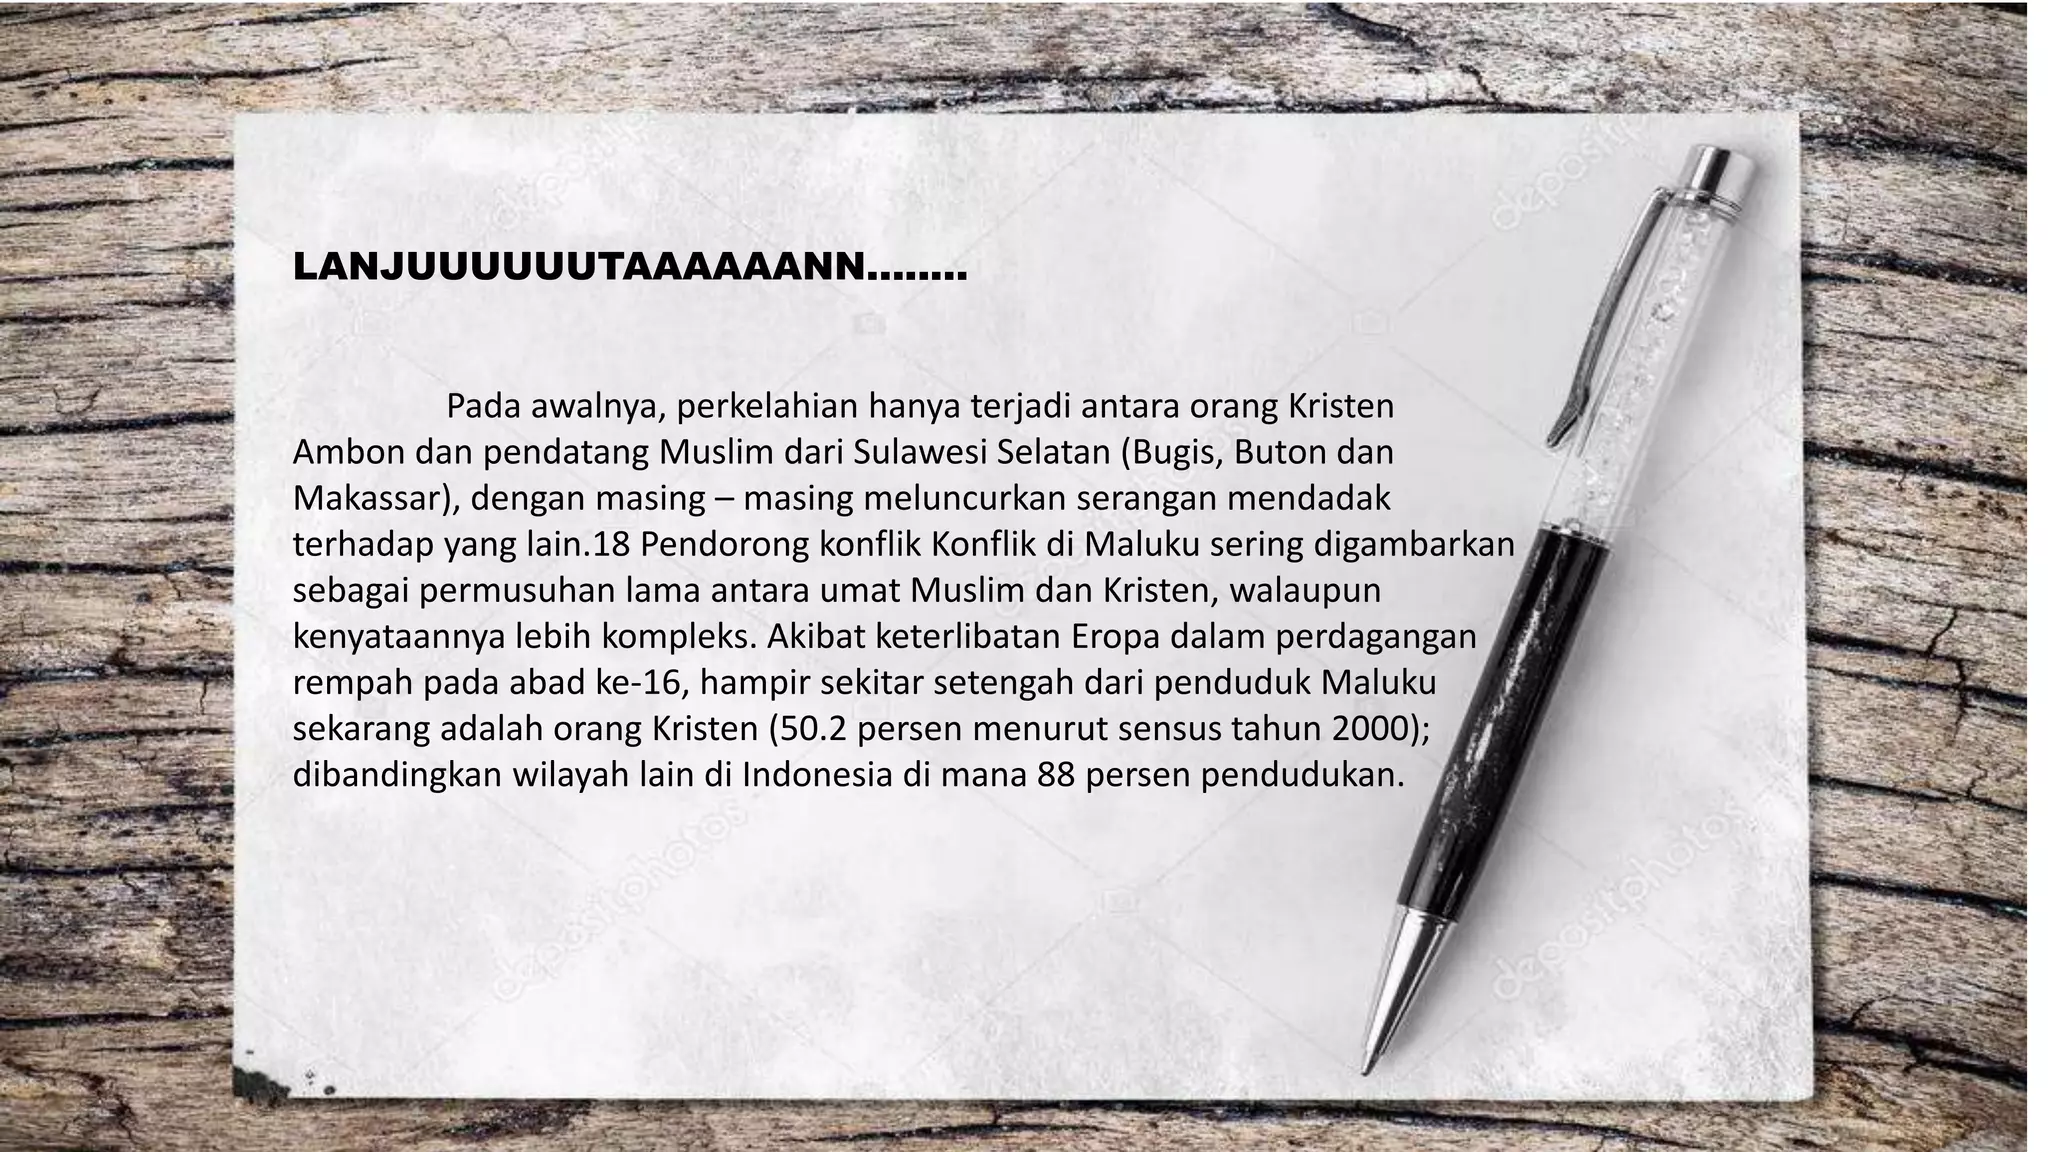 LANJUUUUUUTAAAAAANN........
Pada awalnya, perkelahian hanya terjadi antara orang Kristen
Ambon dan pendatang Muslim dari Sulawesi Selatan (Bugis, Buton dan
Makassar), dengan masing – masing meluncurkan serangan mendadak
terhadap yang lain.18 Pendorong konflik Konflik di Maluku sering digambarkan
sebagai permusuhan lama antara umat Muslim dan Kristen, walaupun
kenyataannya lebih kompleks. Akibat keterlibatan Eropa dalam perdagangan
rempah pada abad ke-16, hampir sekitar setengah dari penduduk Maluku
sekarang adalah orang Kristen (50.2 persen menurut sensus tahun 2000);
dibandingkan wilayah lain di Indonesia di mana 88 persen pendudukan.
depositphotos
depositphotos